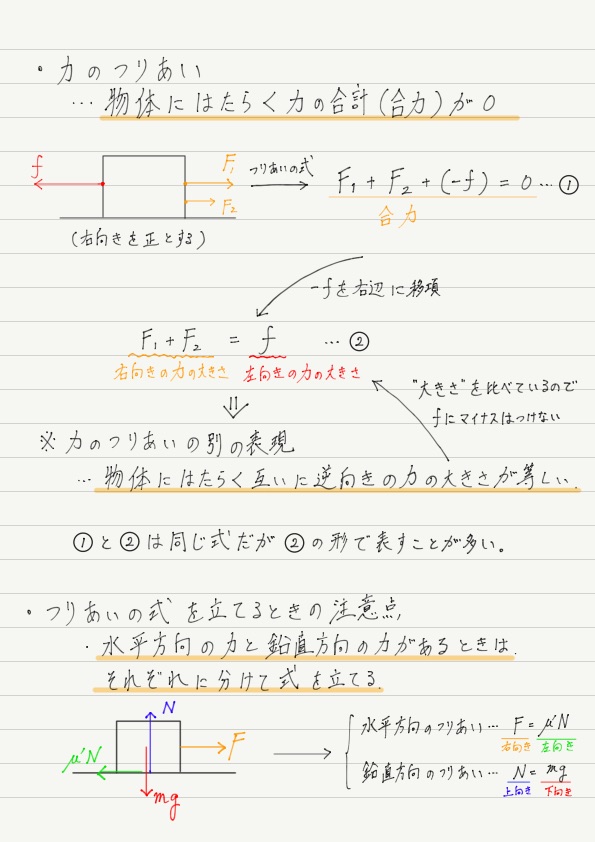 ・力のつりあい
… 物体にはたらく力の合計(合力)が0
f
F₁
F₂
つりあいの式
F₁ + F₂ + (-f) = 0 … ①
合力
(右向きを正とする)
-fを右辺に移項
F₁ + F₂ = f … ②
右向きの力の大きさ 左向きの力の大きさ
"大きさ"を比べているので
fにマイナスはつけない
※ 力のつりあいの別の表現
… 物体にはたらく互いに逆向きの力の大きさが等しい.
①と②は同じ式だが②の形で表すことが多い。
・つりあいの式を立てるときの注意点.
・水平方向の力と鉛直方向の力があるときは.
それぞれに分けて式を立てる.
N
μ'N
F
mg
水平方向のつりあい… F = μ'N
右向き 左向き
鉛直方向のつりあい… N = mg
上向き 下向き